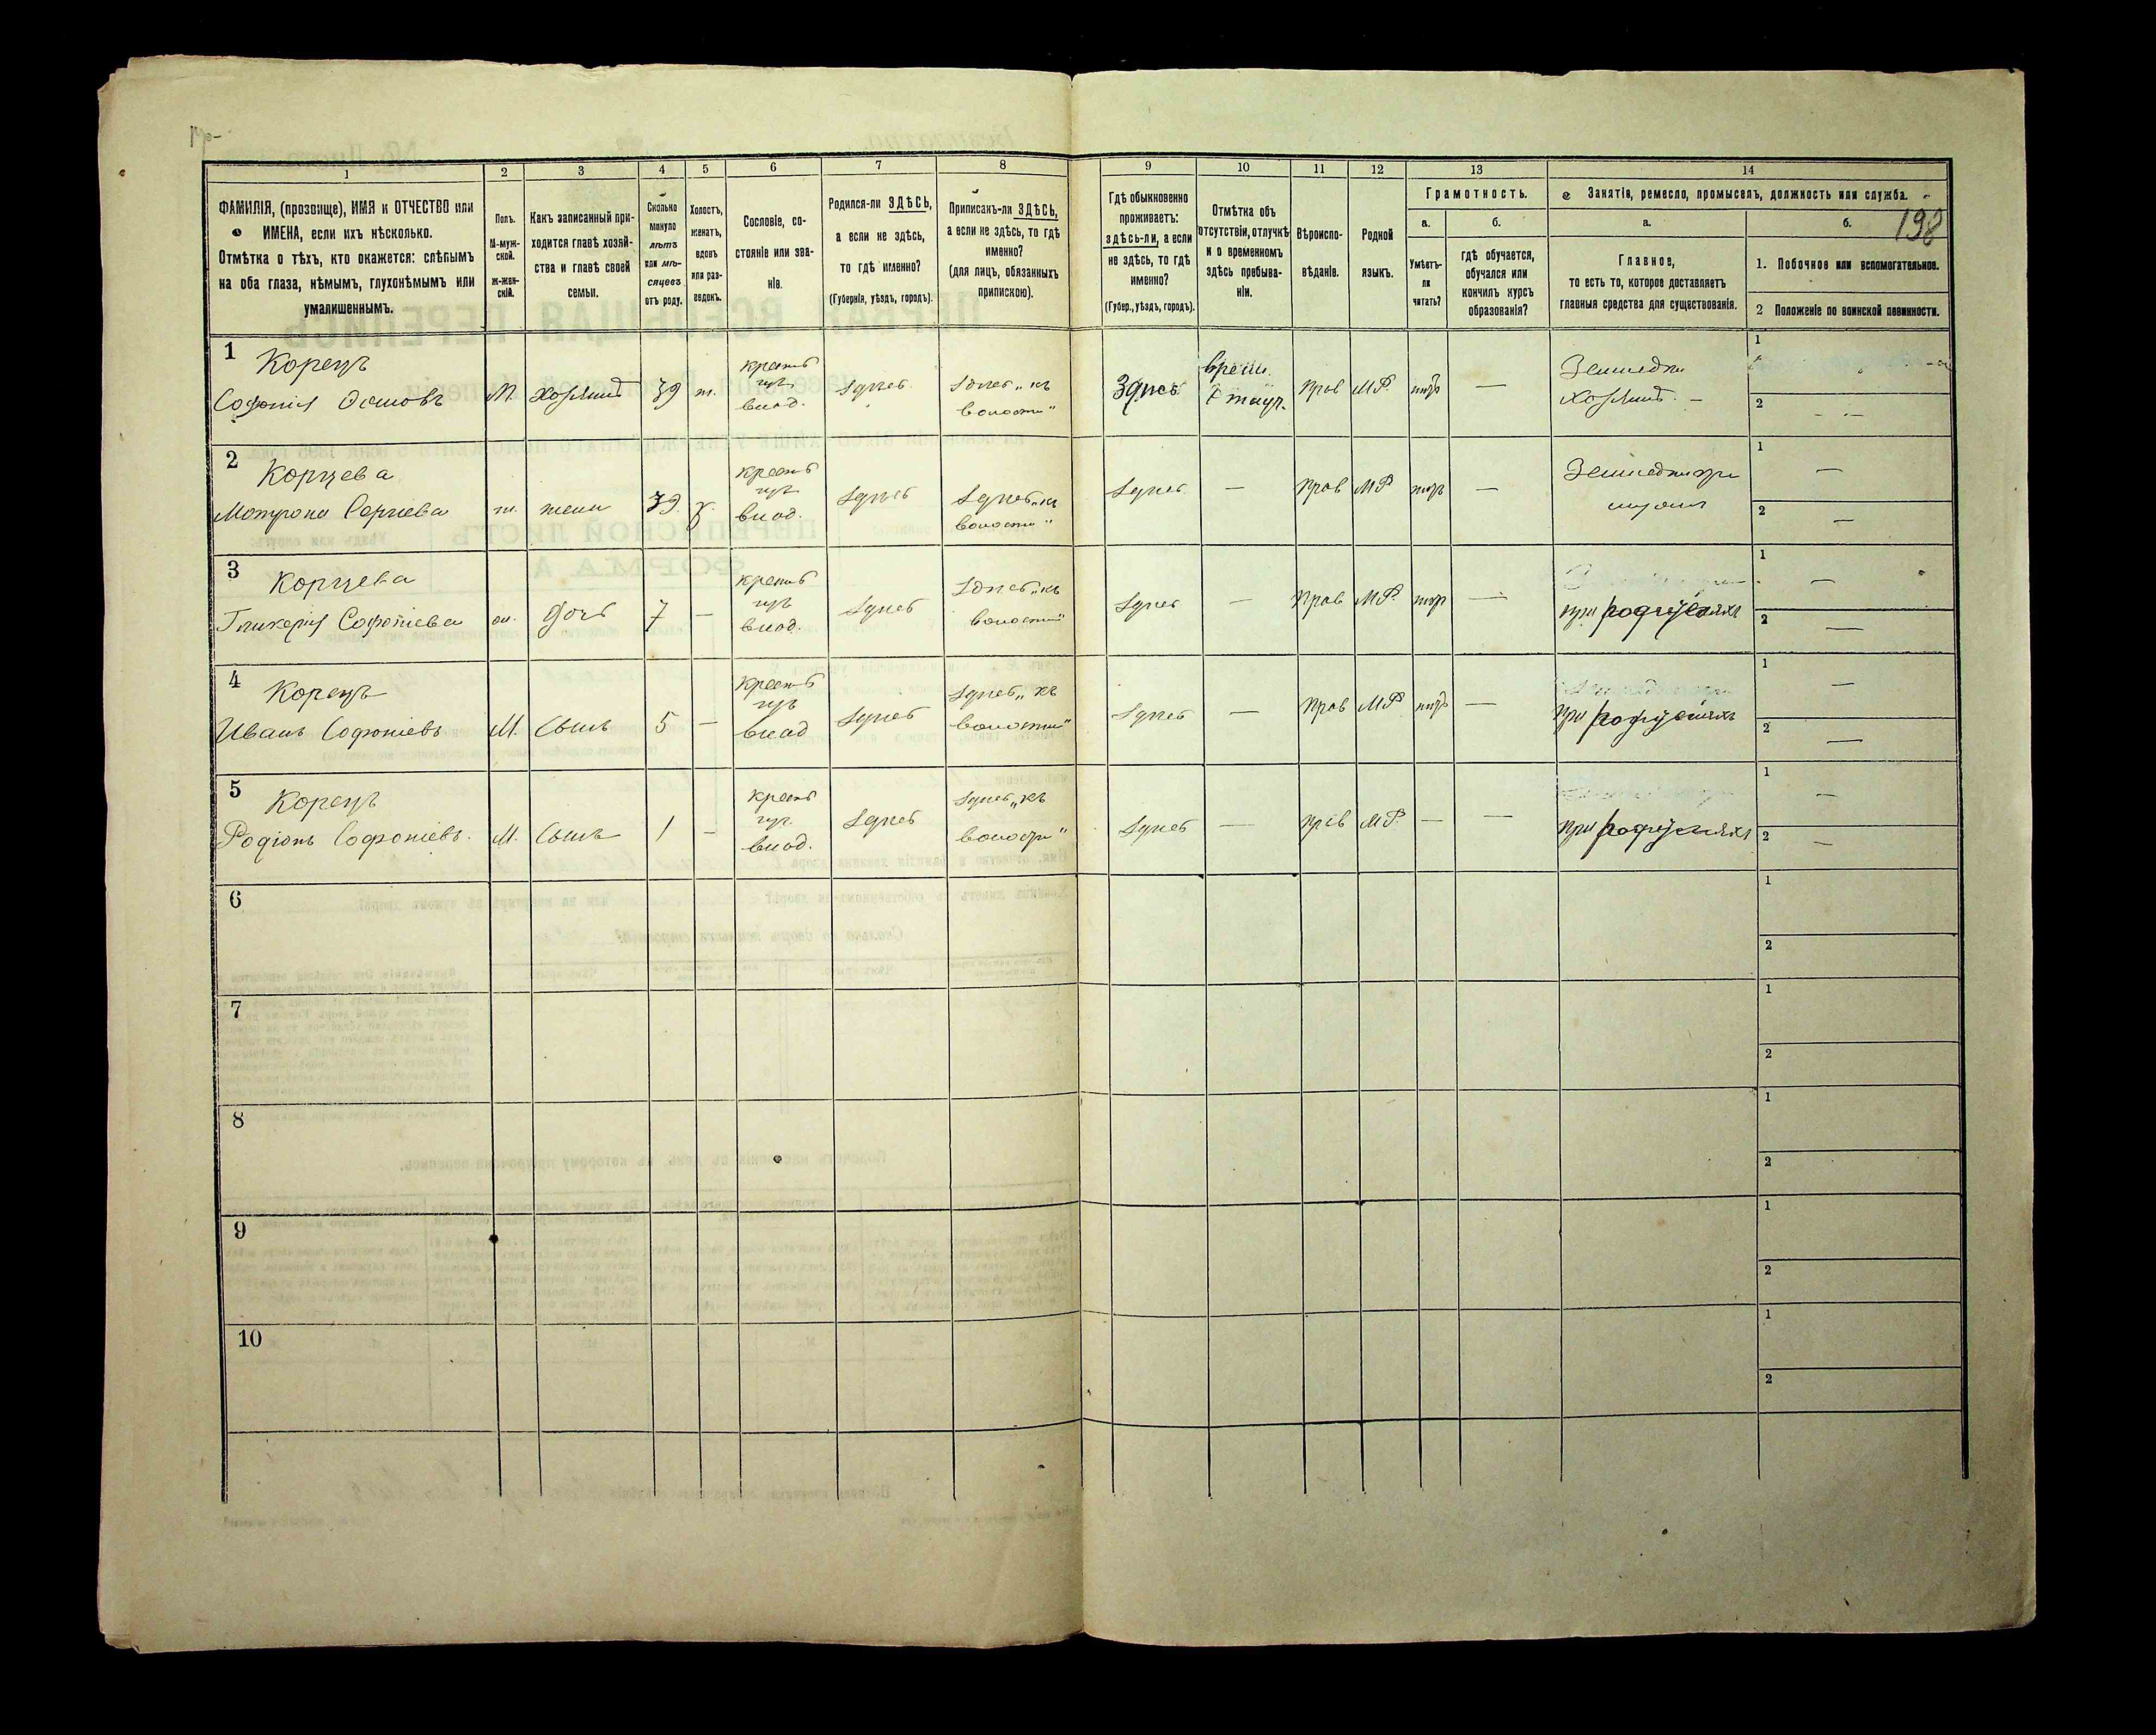 1 2 3 4 5 6 7 8 9 10 11 12 13 14
ФАМИЛІЯ, (прозвище), ИМЯ и ОТЧЕСТВО или
ИМЕНА, если ихъ нѣсколько.
Отмѣтка о тѣхъ, кто окажется: слѣпымъ
на оба глаза, нѣмымъ, глухонѣмымъ или
умалишеннымъ.
Полъ.
М-муж-
ской.
ж-жен-
скій.
Какъ записанный при-
ходится главѣ хозяй-
ства и главѣ своей
семьи.
Сколько
минуло
лѣтъ
или мѣ-
сяцевъ
отъ роду.
Холостъ,
женатъ,
вдовъ
или раз-
веденъ.
Сословіе, со-
стояніе или зва-
ніе.
Родился-ли ЗДѢСЬ,
а если не здѣсь,
то гдѣ именно?
(Губернія, уѣздъ, городъ).
Приписанъ-ли ЗДѢСЬ,
а если не здѣсь, то гдѣ
именно?
(для лицъ, обязанныхъ
припискою).
Гдѣ обыкновенно
проживаетъ:
здѣсь-ли, а если
не здѣсь, то гдѣ
именно?
(Губер., уѣздъ, городъ).
Отмѣтка объ
отсутствіи, отлучкѣ
и о временномъ
здѣсь пребыва-
ніи.
Вѣроиспо-
вѣданіе.
Родной
языкъ.
Грамотность.
а.
Умѣетъ-
ли
читать?
б.
гдѣ обучается,
обучался или
кончилъ курсъ
образованія?
Занятія, ремесло, промыселъ, должность или служба.
а.
Главное,
то есть то, которое доставляетъ
главныя средства для существованія.
б.
198
1. Побочное или вспомогательное.
2 Положеніе по воинской повинности.
1 Корецъ
Софонія М. Хозяинъ 39 ж. крестъ
влад. здѣсь здѣсь „къ
волости“
Здѣсь врем. прав М.Р. —
Хозяинъ —
1
2
2 Корцева
Мотрона Сергіева ж. жена 39. крестъ
влад. здѣсь здѣсь „къ
волости“
здѣсь — прав М.Р. —
1 —
2 —
3 Корцева
Гликерія Софоніева дочь 7 — крестъ
влад. здѣсь здѣсь „къ
волости“
здѣсь — прав М.Р. —
при родителяхъ
1 —
2 —
4 Корецъ
Иванъ Софоніевъ М. Сынъ 5 — крестъ
влад здѣсь здѣсь „къ
волости“
здѣсь — прав М.Р. —
при родителяхъ
1 —
2 —
5 Корецъ
Родіонъ Софоніевъ. М. Сынъ 1 — крестъ
влад. здѣсь здѣсь „къ
волости“
здѣсь — прав М.Р. — —
при родителяхъ
1 —
2 —
6
1
2
7
1
2
8
1
2
9
1
2
10
1
2